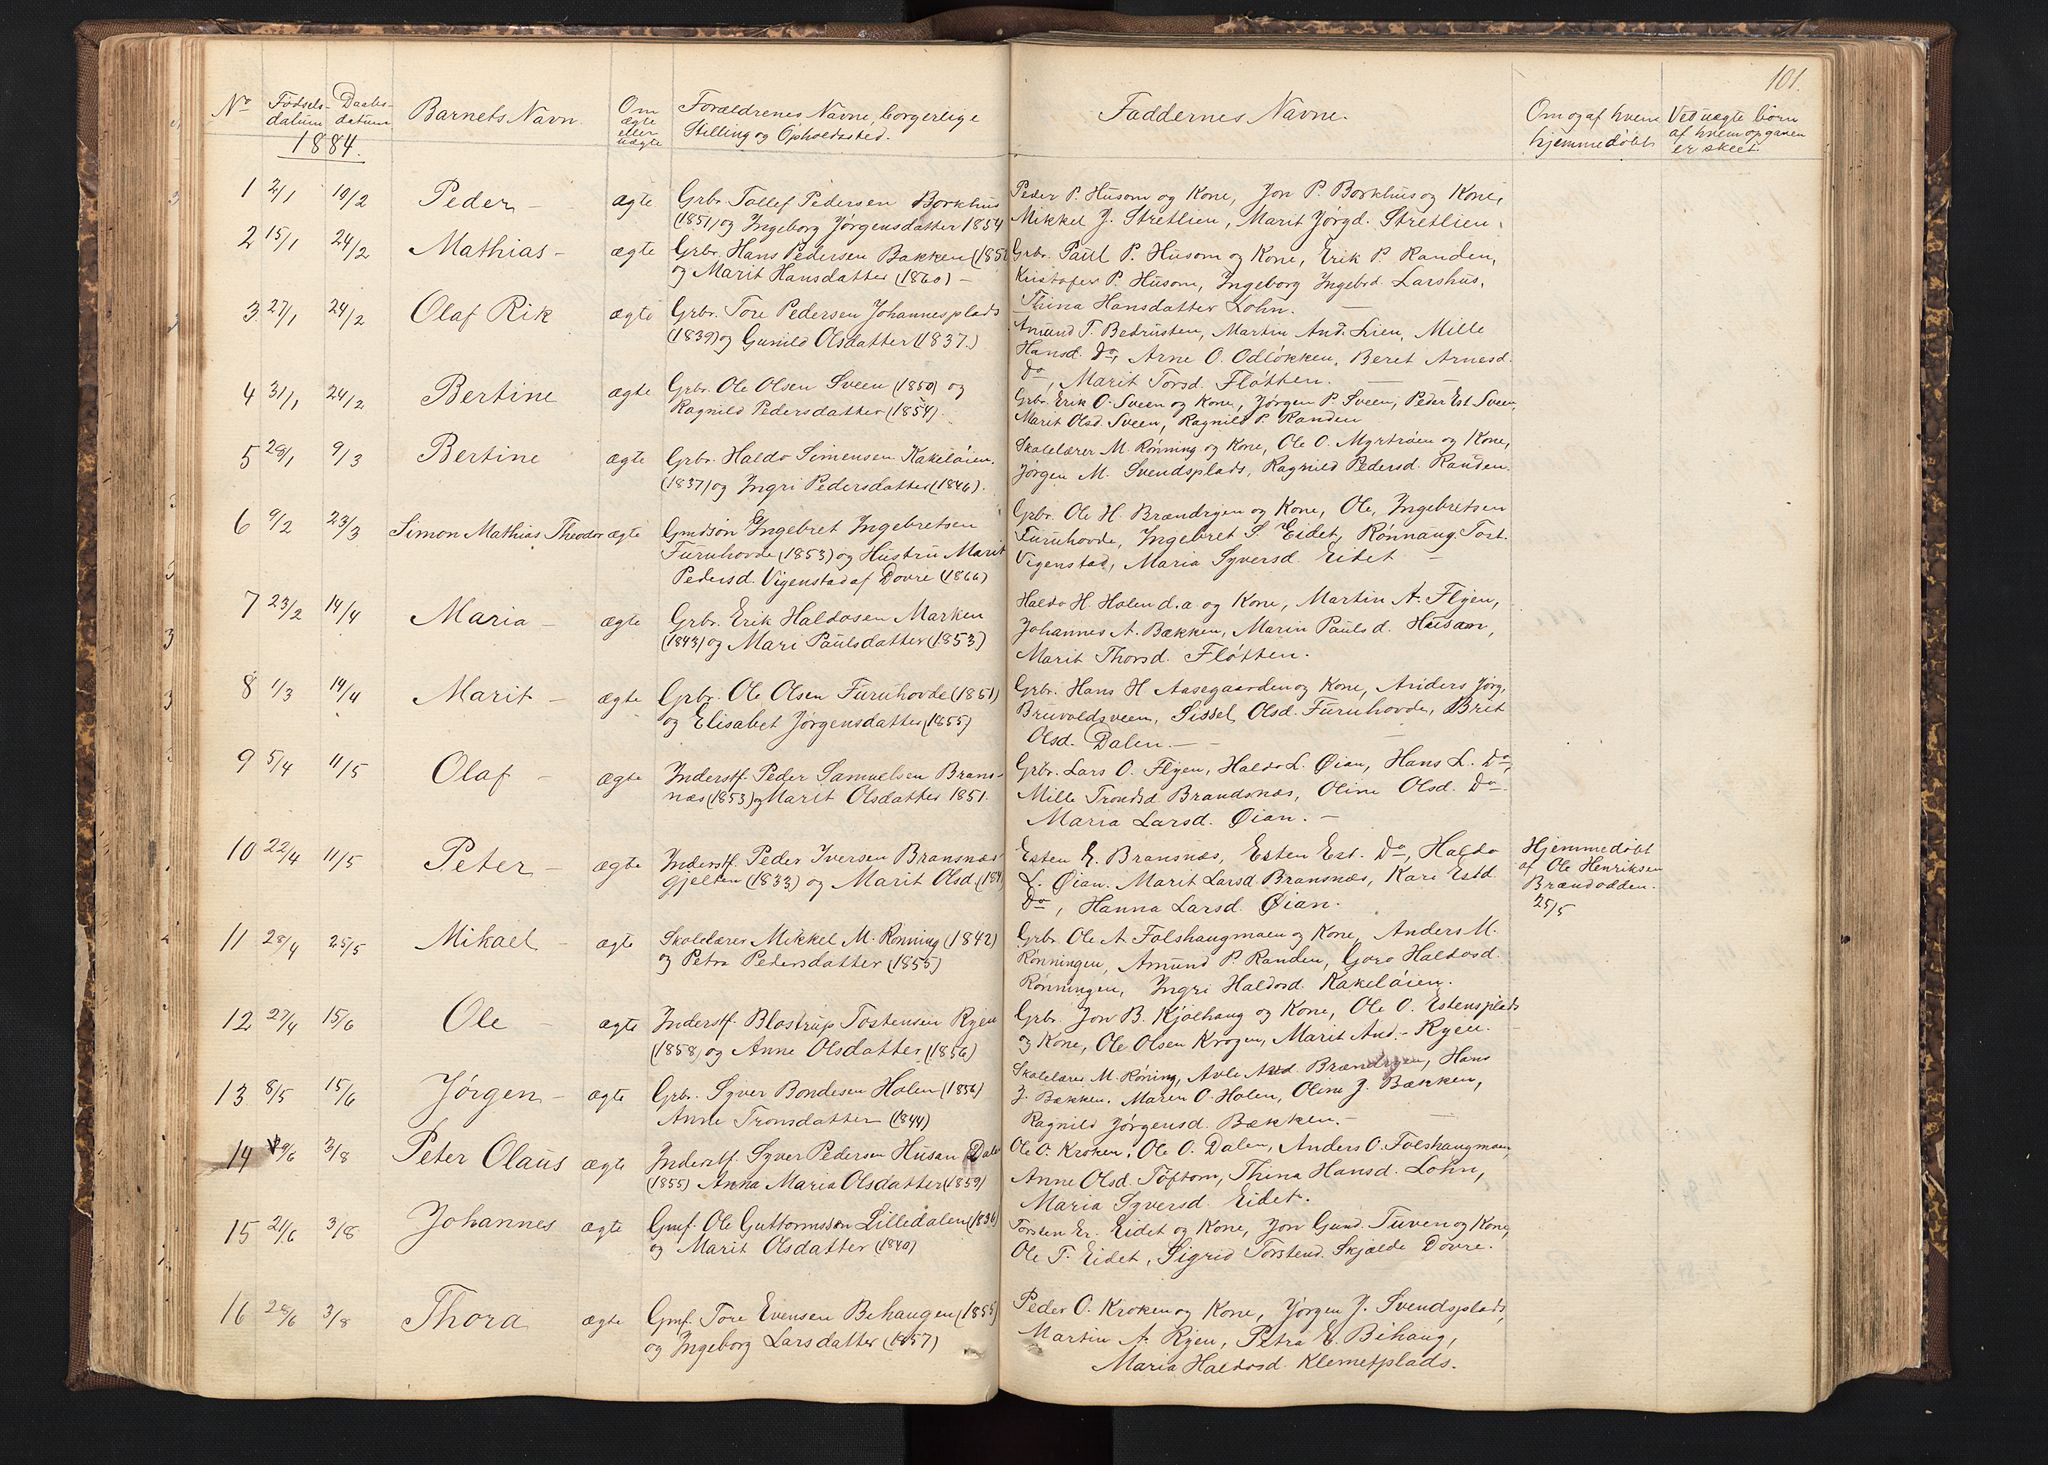 101.
No Fødsels- datum Daabs- datum Barnets Navn. Om ægte eller uægte Forældrenes Navne, borgerlige Stilling og Opholdssted. Faddernes Navne. Om og af hvem hjemmedøbt Ved uægte børn af hvem opgaven er skeet.
1884.
1 2/1 10/2 Peder – ægte Grbr. Tollef Pedersen Borkhus
(1851) og Ingeborg Jørgensdatter 1854
Peder P. Husom og Kone, Jon P. Borkhus og Kone,
Mikkel J. Stretlien, Marit Jørgd. Stretlien.
2 15/1 24/2 Mathias – ægte Grbr. Hans Pedersen Bakken
og Marit Hansdatter (1860) –
Grbr. Paul P. Husom og Kone, Erik P. Randen,
Kristofer P. Husom, Ingeborg Ingebrd. Larshus,
Thina Hansdatter Lohn. –
3 27/1 24/2 Olaf Rik ægte Grbr. Tore Pedersen Johannesplads
(1839) og Gunild Olsdatter (1837.)
Amund T. Bedrusten, Martin And. Lien, Mille
Hansd. Do, Arne O. Odløkken, Beret Arnesd.
Do, Marit Torsd. Fløtten. –
4 31/1 24/2 Bertine ægte Grbr. Ole Olsen Sveen (1850) og
Ragnild Pedersdatter (1854).
Grbr. Erik O. Sveen og Kone, Jørgen P. Sveen, Peder Est Sveen,
Marit Olsd. Sveen, Ragnild P. Randen
5 29/1 9/3 Bertine ægte Grbr. Haldo Simensen Kakeløien.
(1837) og Ingri Pedersdatter (1846).
Skolelærer M. Rønning og Kone, Ole O. Myrtrøen og Kone,
Jørgen M. Svendsplads, Ragnild Pedersd. Randen.
6 9/2 23/3 Simon Mathias Theodor ægte Gmdsøn Ingebret Ingebretsen
Furuhovde (1853) og Hustru Marit
Pedersd. Vigenstad af Dovre (1866)
Grbr. Ole H. Brændryen og Kone, Ole, Ingebretsen
Furuhovde, Ingebret S. Eidet, Rønnaug Tost.
Vigenstad, Maria Syversd. Eidet –
7 23/2 14/4 Maria – ægte Grbr. Erik Haldosen Marken
(1843) og Mari Paulsdatter (1853)
Haldo H. Holen d.a og Kone, Martin A. Flyen,
Johannes A. Bækken, Marin Pauls d. Husom,
Marit Thorsd. Fløtten.
8 1/3 14/4 Marit – ægte Grbr. Ole Olsen Furuhovde (1851)
og Elisabet Jørgensdatter (1855)
Grbr. Hans H Aasegaarden og Kone, Anders Jørg.
Bruvoldsveen, Sissel Olsd. Furuhovde, Brit
Olsd. Dalen. –
9 5/4 11/5 Olaf – ægte Inderstf. Peder Samuelsen Brans-
næs (1853) og Marit Olsdatter 1851.
Grbr. Lars O. Flyen, Haldo L. Øian, Hans L. Do,
Mille Trondsd Brandsnæs, Oline Olsd. Do
Maria Larsd. Øian. –
10 22/4 11/5 Peter – ægte Inderstf. Peder Iversen Bransnæs
gjelten (1833) og Marit Olsd
Esten E. Bransnæs, Esten Est. Do, Haldo
L. Øian. Marit Larsd Bransnæs, Kari Estd
Do, Hanna Larsd. Øian.
Hjemmedøbt
af Ole Henriksen
Brændodden.
25/5
11 28/4 25/5 Mikael – ægte Skolelærer Mikkel M. Rønning (1842)
og Petra Pedersdatter (1855)
Grbr. Ole A Folshaugmoen og Kone, Anders M.
Rønningen, Amund P. Randen, Goro Haldosd.
Rønningen, Ingri Haldosd. Kakeløien.
12 27/4 15/6 Ole ægte Inderstf. Blostrup Tostensen Ryen
(1858) og Anne Olsdatter (1856)
Grbr. Jon B. Kjølhaug og Kone, Ole O. Estensplads
og Kone, Ole Olsen Krogen, Marit And. – Ryen.
13 8/5 15/6 Jørgen – ægte Grbr. Syver Bondesen Holen (1856)
Anne Tronsdatter (1844)
Skolelærer M. Røning, Avle And. Brændryen, Hans
J. Bækken, Maren O. Holen, Oline J. Bækken,
Ragnild Jørgensd. Bækken. –
14 9/6 3/8 Peter Olaus ægte Inderstf. Syver Pedersen Husan Dalen
(1855) Anna Maria Olsdatter (1859)
Ole O. Kroken, Ole O. Dalen, Anders O. Folshaugmoen,
Anne Olsd. Toftom, Thina Hansd. Lohn,
Maria Syversd. Eidet.
15 21/6 3/8 Johannes ægte Gmf. Ole Guttormssøn Lilledalen
og Marit Olsdatter (1840)
Torsten Er. Eidet og Kone, Jon Gund. Tuven og Kone,
Ole T. Eidet, Sigrid Torstend. Skjælde Dovre.
16 28/6 3/8 Thora ægte Gmf. Tore Evensen Behaugen (1855)
og Ingeborg Larsdatter (1857)
Peder O. Kroken og Kone, Jørgen J. Svendsplads,
Martin A. Ryen, Petra E. Bihaug,
Maria Haldosd Klemetplads.